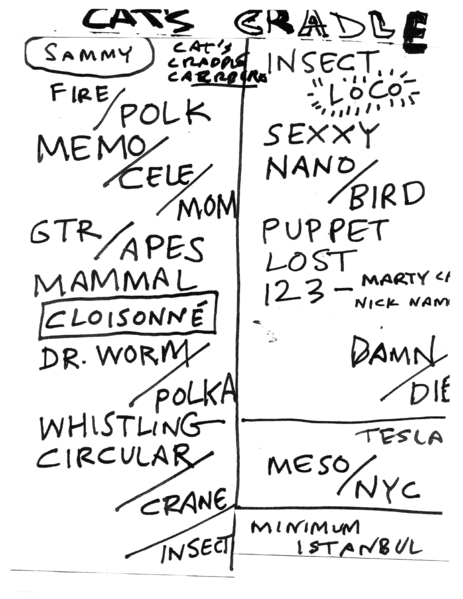 CAT'S CRADLE
SAMMY
CAT'S
CRADDLE
FIRE/POLK
MEMO/CELE/MOM
GTR/APES
MAMMAL
CLOISONNÉ
DR. WORM/POLKA
WHISTLING
CIRCULAR/CRANE
/INSECT
INSECT
LOCO
SEXXY
NANO/BIRD
PUPPET
LOST
123 - MARTY
NICK NAM
DAMN/DIE
TESLA
MESO/NYC
MINIMUM
ISTANBUL